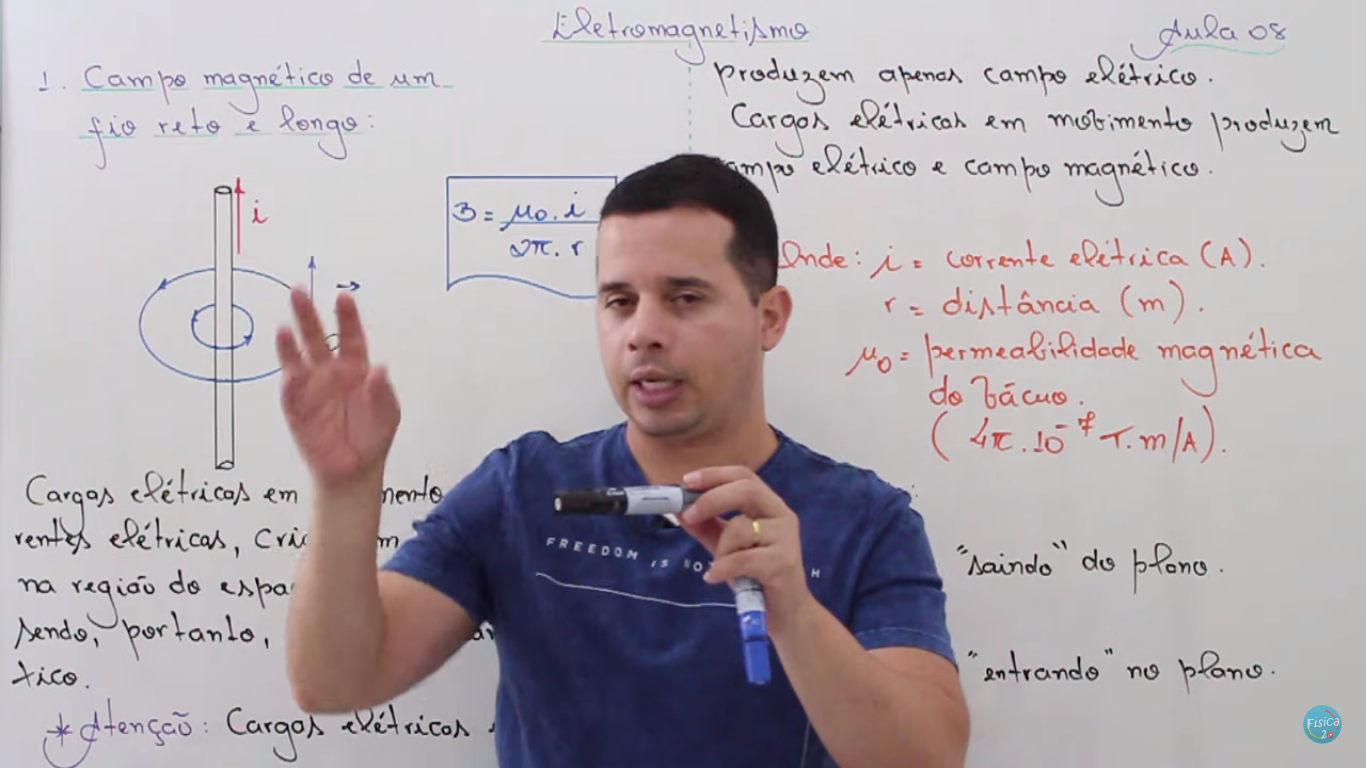 Eletromagnetismo
Aula 08
1. Campo magnético de um
fio reto e longo:
i
B = μ0 . i
2π . r
Cargas elétricas em
elétricas,
na região do
sendo, portanto,
tico.
* Atenção: Cargas elétricas
produzem apenas campo elétrico.
Cargas elétricas em movimento produzem
elétrico e campo magnético.
Onde: i = corrente elétrica (A).
r = distância (m).
μ0 = permeabilidade magnética
do vácuo.
(4π.10⁻⁷ T.m/A).
"saindo" do plano.
"entrando" no plano.
FREEDOM IS
Física
2.0